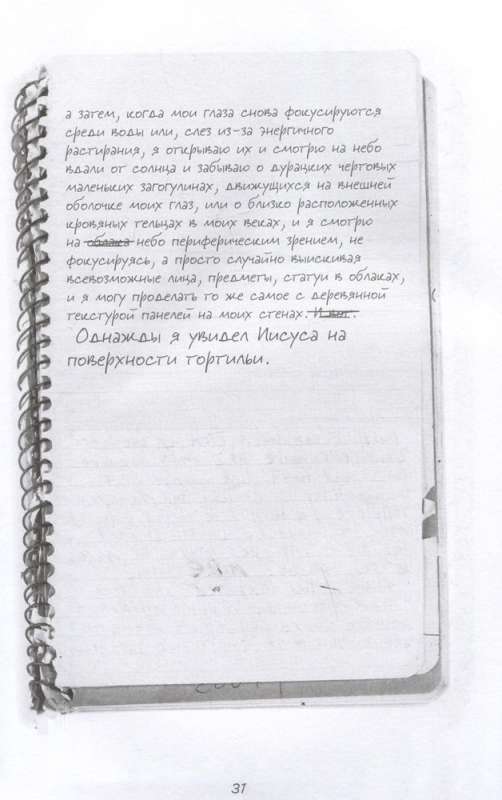 а затем, когда мои глаза снова фокусируются
среди воды или, слез из-за энергичного
растирания, я открываю их и смотрю на небо
вдали от солнца и забываю о дурацких чертовых
маленьких загогулинах, движущихся на внешней
оболочке моих глаз, или о близко расположенных
кровяных тельцах в моих веках, и я смотрю
на облака небо периферическим зрением, не
фокусируясь, а просто случайно выискивая
всевозможные лица, предметы, статуи в облаках,
и я могу проделать то же самое с деревянной
текстурой панелей на моих стенах. И вот.
Однажды я увидел Иисуса на
поверхности тортильи.
31